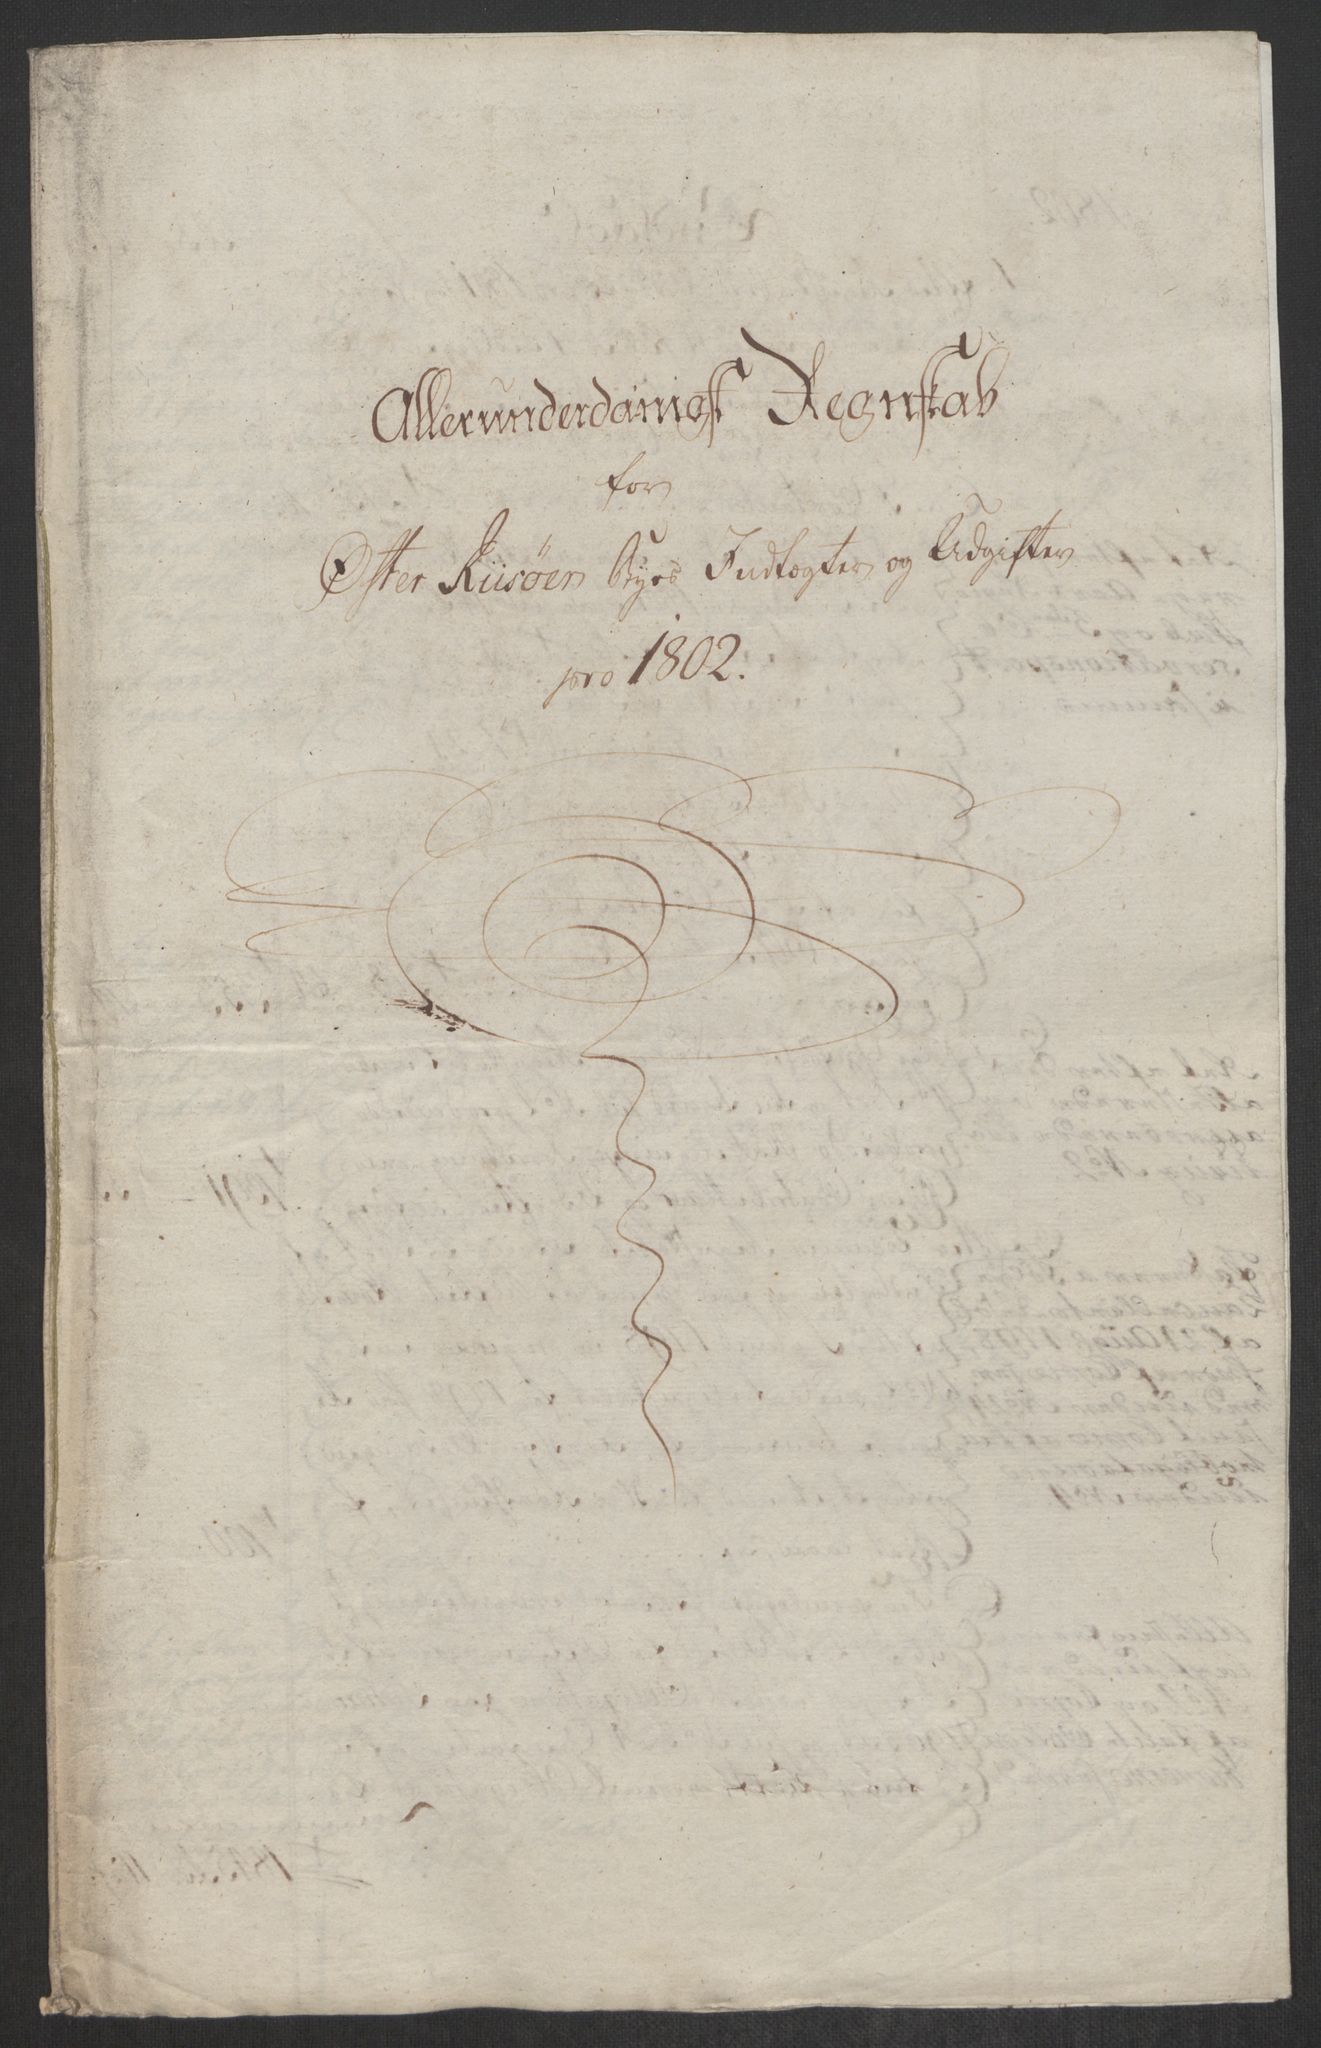 Allerunderdanigst Regnskab
for
Øster Riisöer Byes Indtægter og Udgifter
pro 1802.